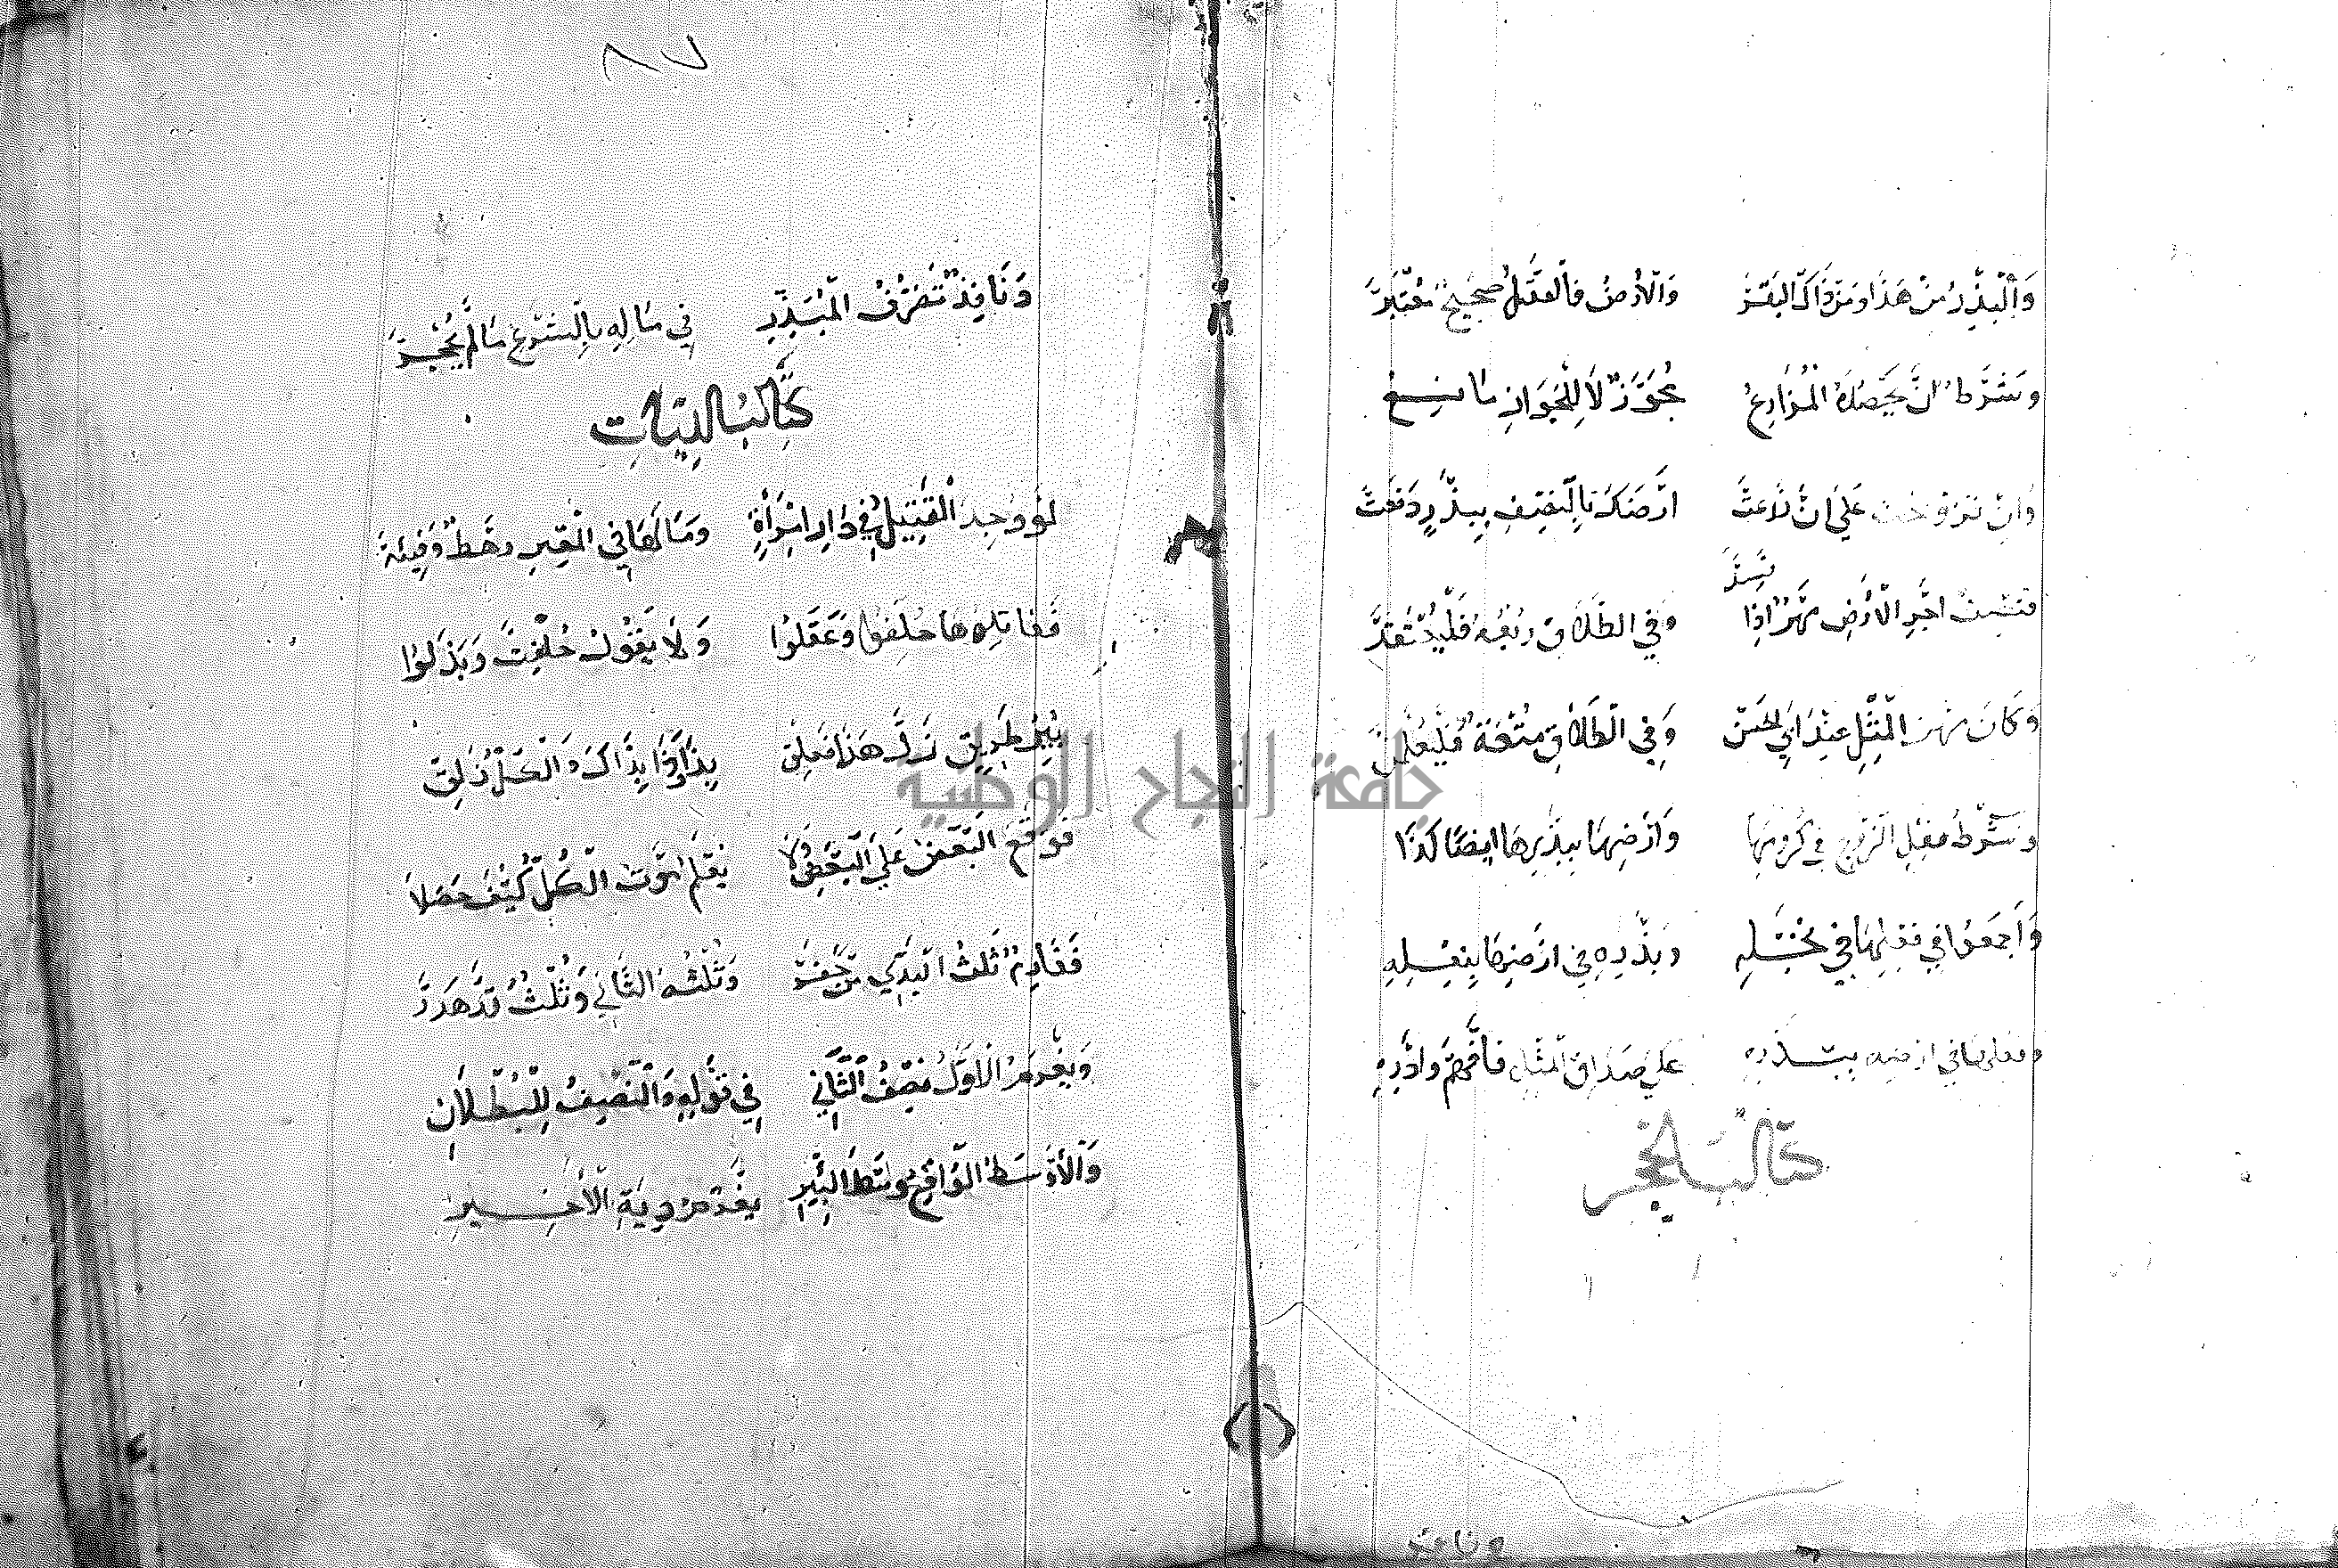 وَالْبَذْرُ مِنْ هَذَا وَمِنْ ذَاكَ الْبَقَرْ وَالْأَرْضُ فَالْعَقْدُ صَحِيحٌ مُعْتَبَرْ
وَشَرْطُ أَنْ يَحْصُدَهُ الْمُزَارِعُ مُجَوَّزٌ لَا لِلْجَوَازِ مَانِعُ
وَإِنْ تَزَوَّجْتَ عَلَى أَنْ زَرَعَتْ أَرْضَكَ بِالنِّصْفِ بِبَذْرٍ دَفَعَتْ
فَنِصْفُ أَجْرِ الْأَرْضِ مَهْرٌ إِذَا وَفِي الطَّلَاقِ رُبْعُهُ
وَكَانَ مَهْرَ الْمِثْلِ عِنْدَ أَبِي الْحَسَنْ وَفِي الطَّلَاقِ مُتْعَةٌ فَلْيُعْلَمَنْ
وَشَرْطُ فِعْلِ الزَّوْجِ فِي كُرُومِهَا وَأَرْضِهَا بِبَذْرِهَا أَيْضًا كَذَا
وَأَجْمَعُوا فِي فِعْلِهَا فِي نَخْلِهِ وَبَذْرِهِ فِي أَرْضِهَا بِفِعْلِهِ
وَفِعْلِهَا فِي أَرْضِهِ بِبَذْرِهِ عَلَى صَدَاقِ الْمِثْلِ فَافْهَمْ وَادْرِهِ
كتاب الحجر
ونافذ
٨٧
وَنَافِذٌ تَصَرُّفُ الْمُبَذِّرِ فِي مَالِهِ بِالشَّرْعِ مَا لَمْ يُحْجَرِ
كتاب الديات
لَوْ وُجِدَ الْقَتِيلُ فِي دَارِ امْرَأَةٍ وَمَا لَهَا فِي الْمِصْرِ رَهْطٌ وَفِئَةْ
حَلَفُوا وَعَقَلُوا وَلَا يَقُولُ حُلِّفَتْ وَبَذَلُوا
بِئْرُ طَرِيقٍ زَلَّ هَذَا فَعَلِقْ بِذَا وَذَا بِذَاكَ وَالْكُلُّ زَلِقْ
فَوَقَعَ الْبَعْضُ عَلَى الْبَعْضِ وَلَا يُعْلَمُ مَوْتُ الْكُلِّ كَيْفَ حَصَلَا
ثُلْثَ الْبَدْءِ مَنْ حَفَرْ وَثُلْثُهُ الثَّانِي وَثُلْثٌ قَدْ هَدَرْ
وَيَغْرَمُ الْأَوَّلُ نِصْفَ الثَّانِي فِي قَوْلِهِ وَالنِّصْفُ لِلْبُطْلَانِ
وَالْأَوْسَطُ الْوَاقِعُ وَسْطَ الْبِئْرِ يَغْرَمُ دِيَةَ الْأَخِيرِ
جامعة النجاح الوطنية